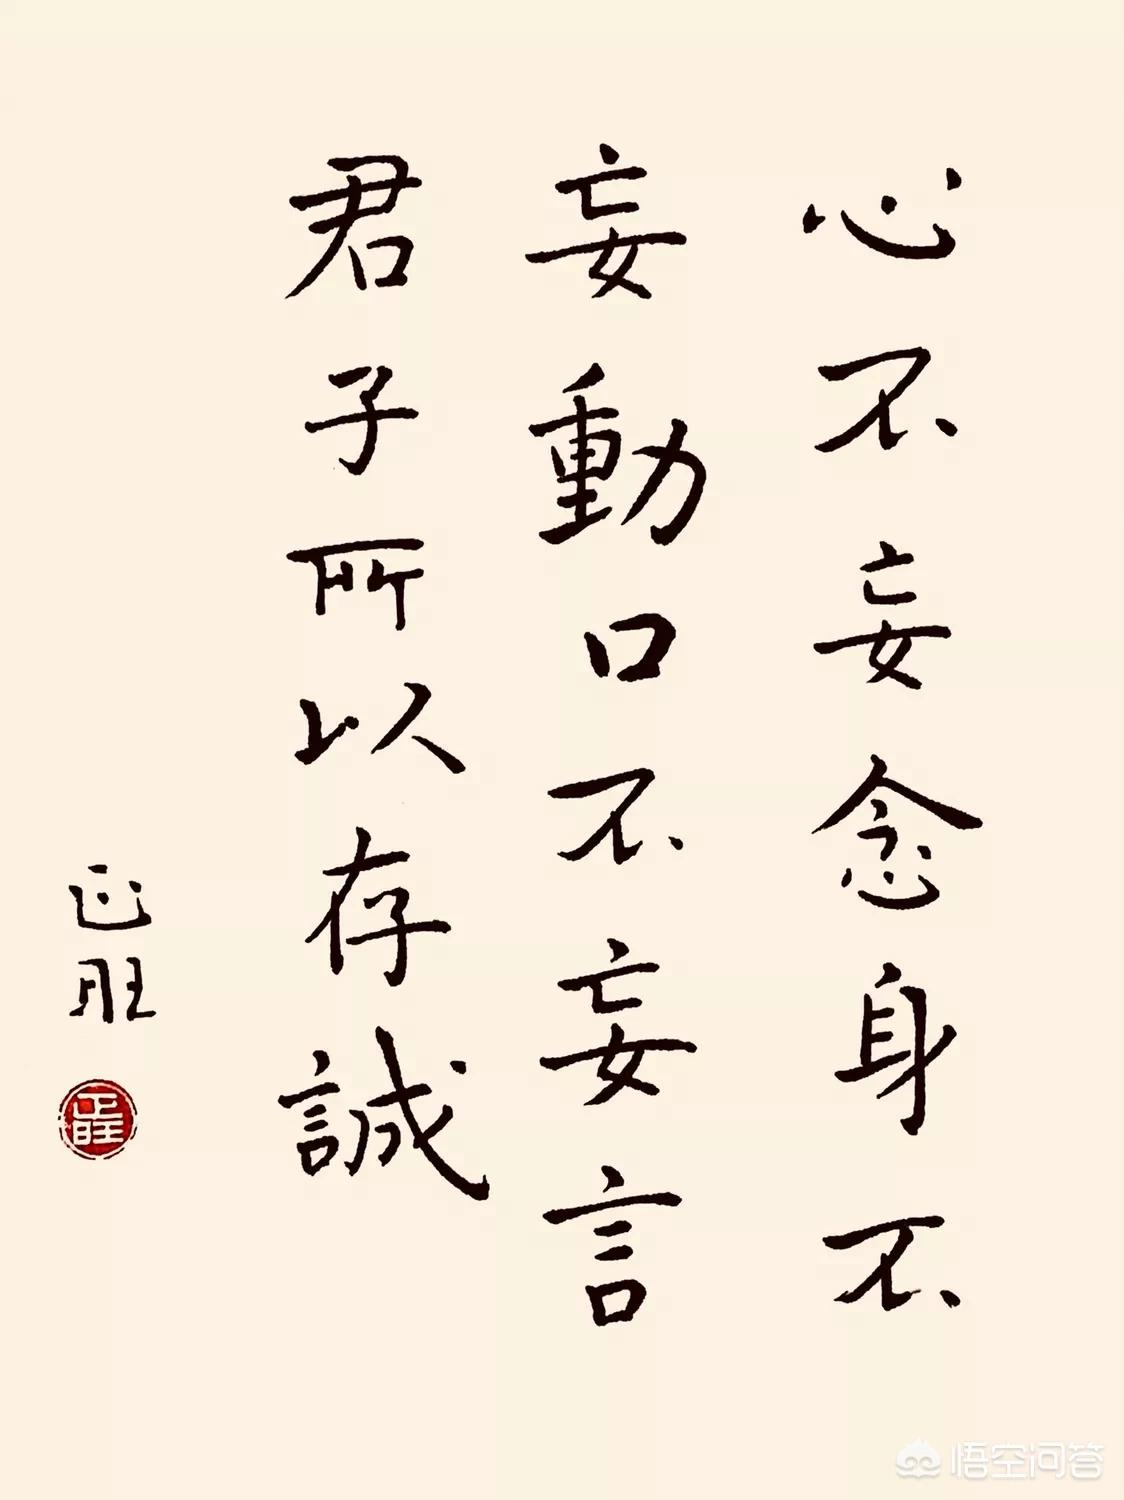 心不妄念身不
妄動口不妄言
君子所以存誠
正旺
正旺
悟空问答